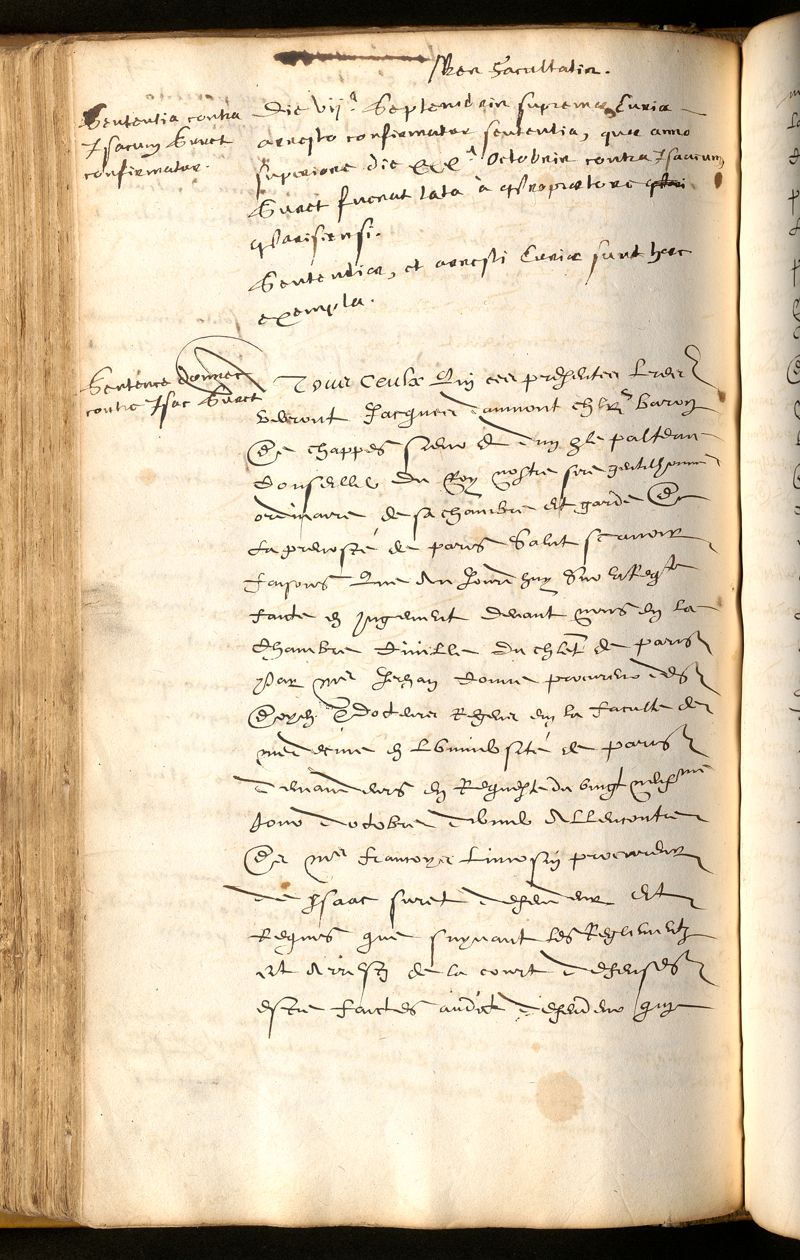 Res Facultatis.
Sententia contra
Isacum Suret
confirmatur.
Die vijª Septembris suprema Curia
aresto confirmatur sententia, quæ anno
superiore die xxxª Octobris contra Isaacum
Suret fuerat lata à Propraetore
Parisiensi.
Sententiæ, et aresti Curiæ sunt hæc
exempla.
Sentence donnee
contre Isac Suret
Tous ceulx Qui ces presentes lres
verront Jacques daumont chlr baron
De chappes sieur de dun le palteau
Conseiller du Roy nostre sire gentilhomme
ordinaire de sa chambre et garde De
La prevosté de paris Salut scavoir
faisons Que au Jourdhuy Sur la Reqte
faicte en Jugement devant nous en la
chambre Civille du chlet de paris
Par me Jehan procureur des
Doyen Docteurs Regens en la faculte de
medecine en Luniversité de paris
demandeurs en Requeste du vingt
Jour doctobre dernier allencontre
De me francoys Limosin procureur
de Isaac suret defendeur Et
Requis que suyvant les Reglementz
et arrestz de la court defenses
estre faictes audict defendeur